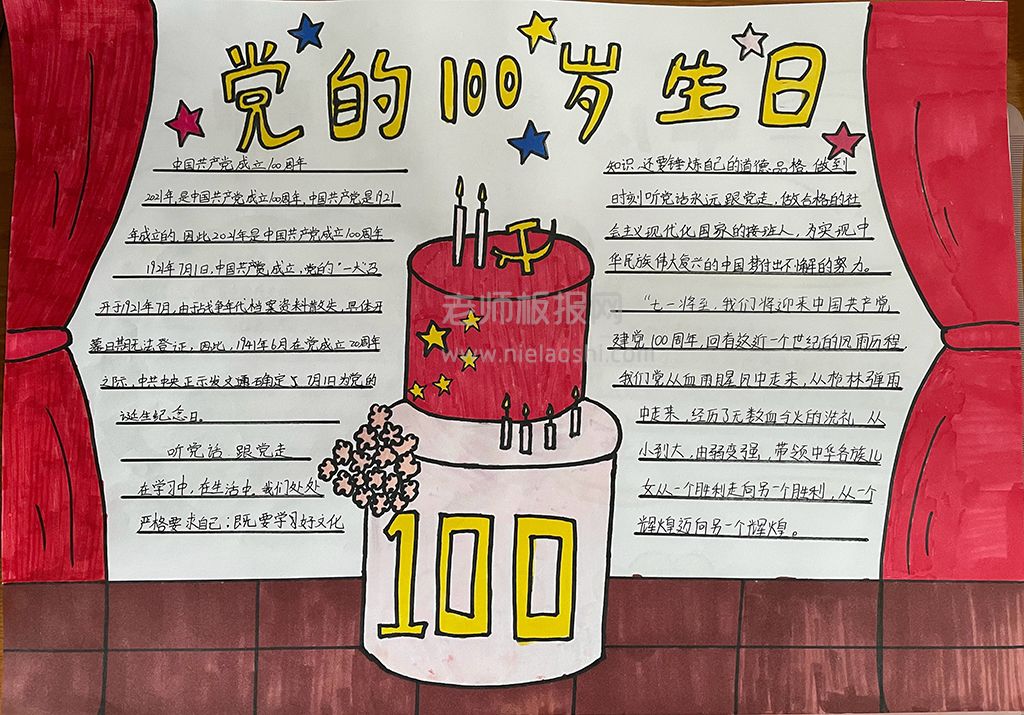 党的100岁生日
中国共产党成立100周年
2021年,是中国共产党成立100周年,中国共产党是1921
年成立的,因此2021年是中国共产党成立100周年
1921年7月1日,中国共产党成立,党的"一大"召
开于1921年7月,由于战争年代档案资料散失,具体开
幕日期无法登记,因此,1941年6月在党成立20周年
之际,中共中央正示发文通确定了7月1日为党的
诞生纪念日。
听党话 跟党走
在学习中,在生活中,我们处处
严格要求自己:既要学习好文化
知识,还要锤炼自己的道德品格,做到
时刻听党话永远跟党走,做合格的社
会主义现代化国家的接班人,为实现中
华民族伟大复兴的中国梦付出不懈的努力。
"七一将至,我们将迎来中国共产党
建党100周年,回首这近一个世纪的风雨历程
我们党从血雨腥风中走来,从枪林弹雨
中走来,经历了无数血与火的洗礼,从
小到大,由弱变强,带领中华各族儿
女从一个胜利走向另一个胜利,从一个
辉煌迈向另一个辉煌。
100
老师板报网
www.nielaoshi.com